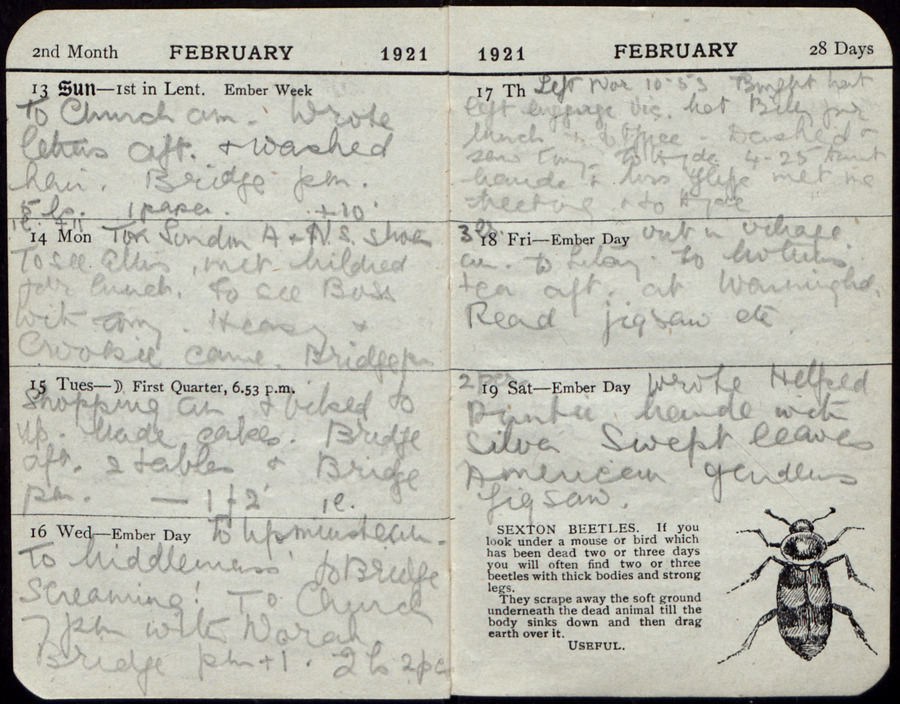 2nd Month FEBRUARY 1921
13 Sun—1st in Lent. Ember Week
To Church am. Wrote
letters aft. + washed
hair. Bridge pm.
1 paper. +10
14 Mon For London A + N.S. shoes
To see, met Mildred
for lunch. To see Boss
with Amy. &
Crookie came. Bridge pm
15 Tues—☽ First Quarter, 6.53 p.m.
Shopping am + biked to
up. Made cakes. Bridge
aft. 2 tables & Bridge
pm. —
16 Wed—Ember Day To Upminster am.
To Middlemass' to Bridge
Screaming! To Church
7 pm with Norah.
Bridge pm +1.
1921 FEBRUARY 28 Days
17 Th Left Wor 10-53 Bought hat
left luggage Vic. met Billy for
lunch + coffee. Dashed &
saw Amy. To Hyde 4-25 Aunt
Maude + Miss met me
meeting + to Hyde
18 Fri—Ember Day out in village
am. To
tea aft. at Warninglid.
Read jigsaw etc
19 Sat—Ember Day Wrote Helped
Auntie Maude with
Silver Swept leaves
American gardens
Jigsaw.
SEXTON BEETLES. If you
look under a mouse or bird which
has been dead two or three days
you will often find two or three
beetles with thick bodies and strong
legs.
They scrape away the soft ground
underneath the dead animal till the
body sinks down and then drag
earth over it.
USEFUL.